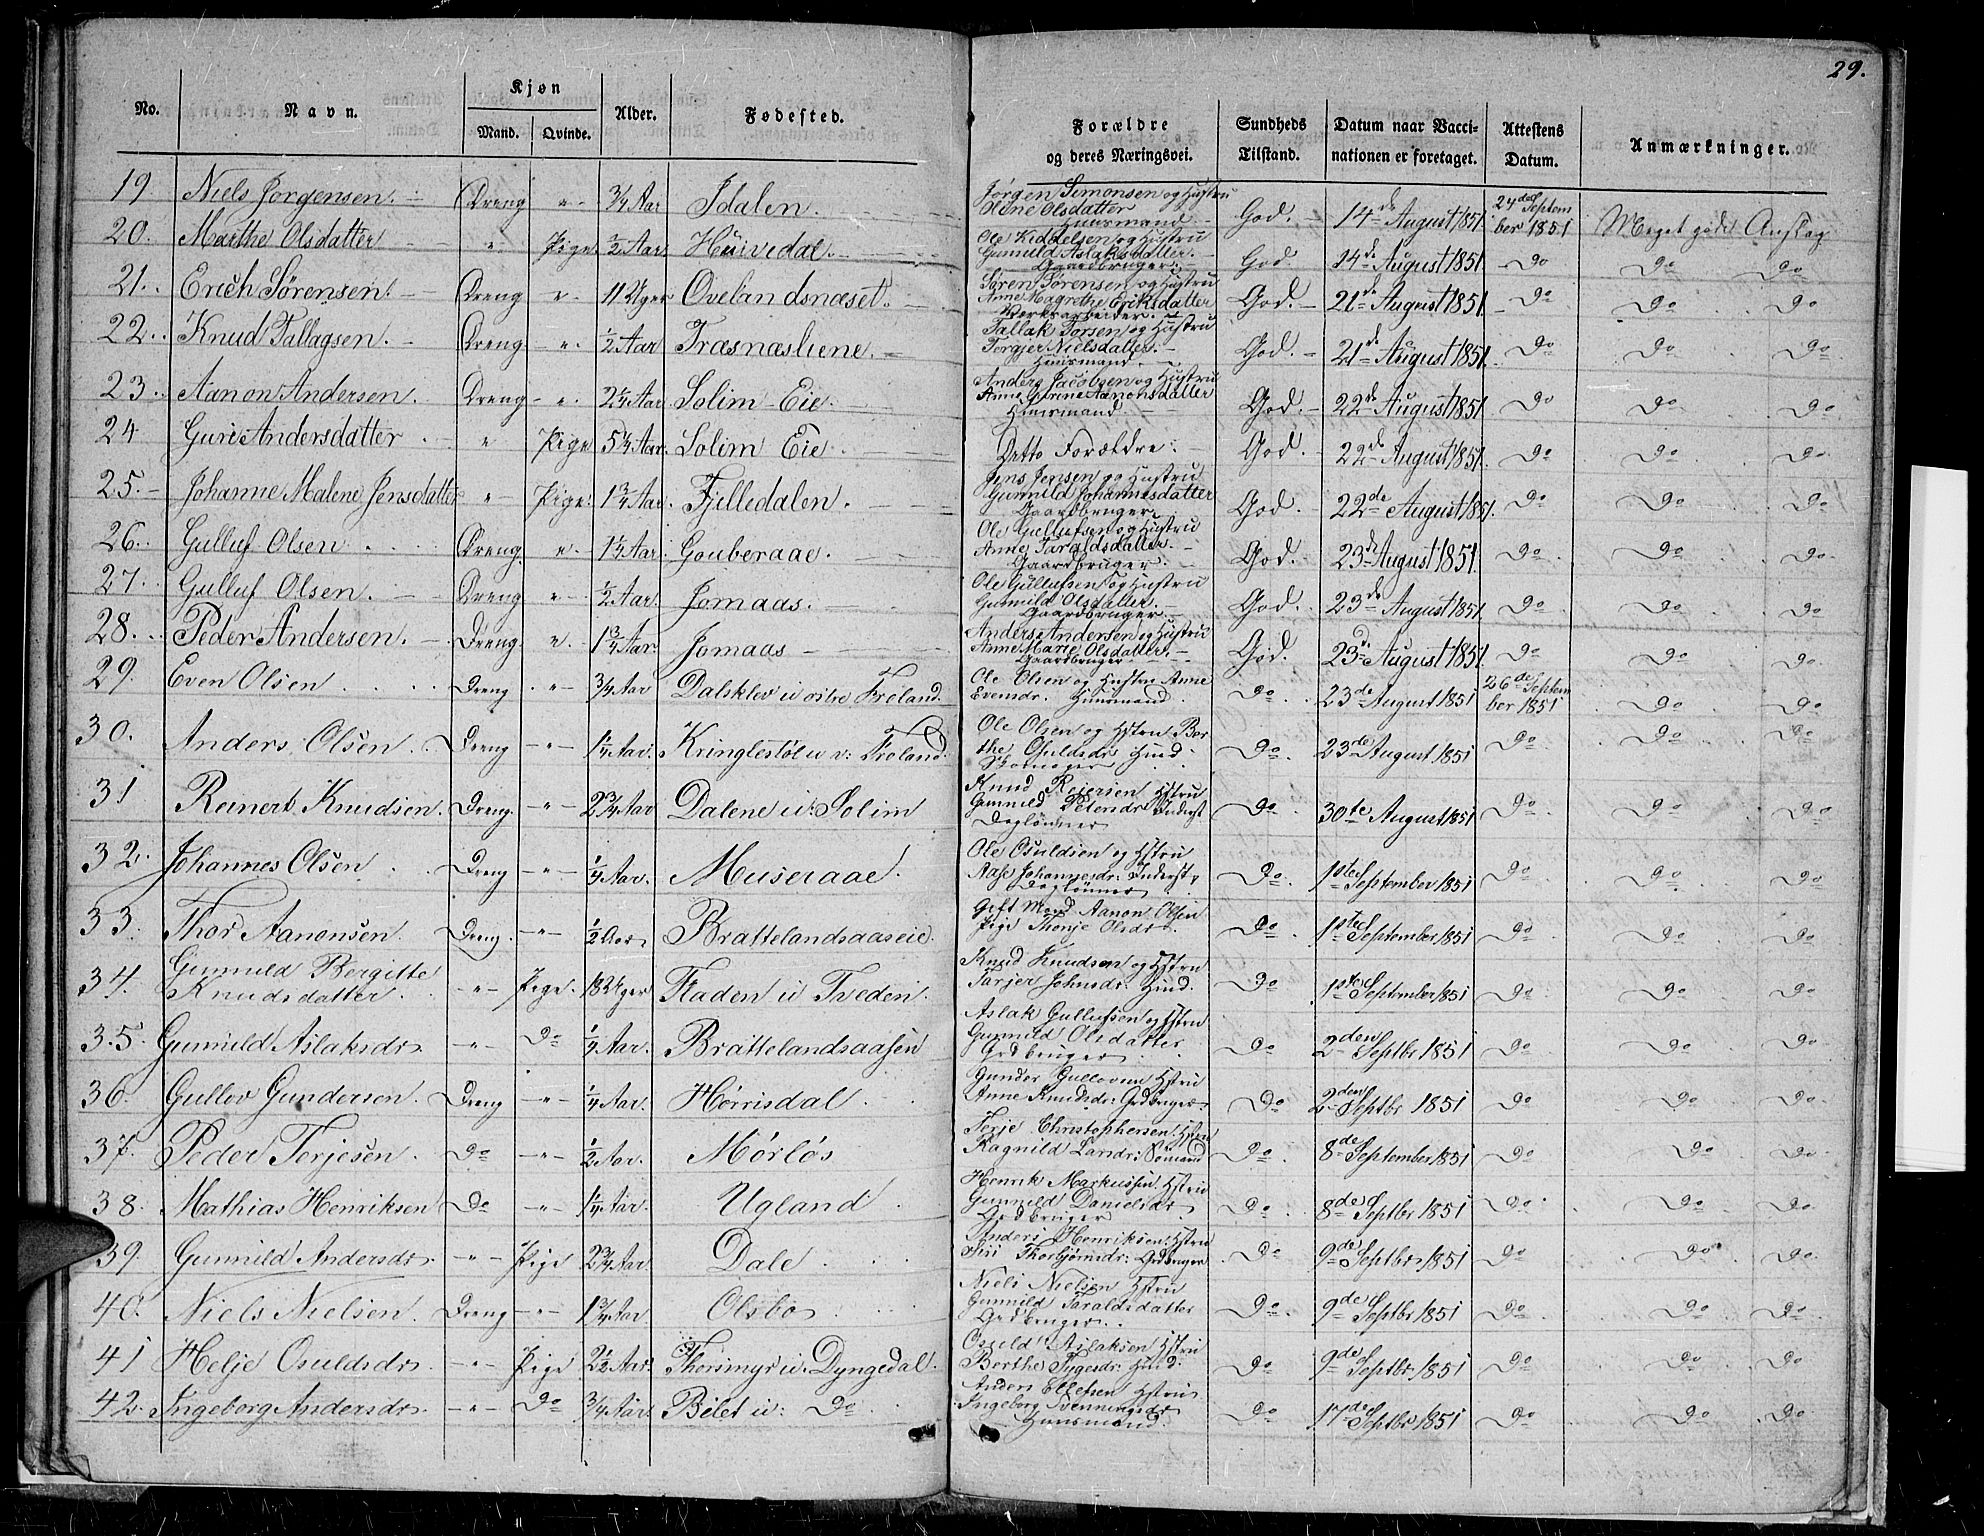 29.
No. Navn. Kjøn Mand. Qvinde. Alder. Fødested. Forældre og deres Næringsvei. Sundheds Tilstand. Datum naar Vaccinationen er foretaget. Attestens Datum. Anmærkninger.
19. Niels Jørgensen. Dreng " 3/4 Aar Idalen. Jørgen Simonsen og Hustru
Oline Olsdatter
Huusmand God. 14de August 1851 24de Septem
ber 1851 Meget gode Anslag
20. Marthe Olsdatter " Pige 1/2 Aar Huivedal. Ole Kiddelsen og Hustru
Gunnild Aslaksdatter.
Gaardbruger. God 14de August 1851 Do Do Do
21. Erich Sørensen. Dreng " 11 Uger Ovelandsnæset. Søren Sørensen og Hustru
Anne Magrethe Eriksdatter
Værksarbeider. God. 21de August 1851. Do Do Do
22. Knud Tallagsen. Dreng " 1/2 Aar Træsnæsliene. Tallak Torsen og Hustru
Torgjer Nielsdatter.
Huusmand. God. 21de August 1851. Do Do Do
23. Aanon Andersen. Dreng " 2 1/4 Aar Solim Eie. Anders Jacobsen og Hustru
Anne Gurine Aanonsdatter
Huusmand God. 22de August 1851. Do Do Do
24 Guri Andersdatter " Pige 5 1/4 Aar. Solim Eie. Ditto Forældre. God. 22de August 1851. Do Do Do
25. Johanne Malene Jensdatter " Pige. 1 3/4 Aar. Fjelledalen. Jens Jensen og Hustru
Gunnild Johannesdatter
Gaardbruger God. 22de August 1851. Do Do Do
26. Gulluf Olsen Dreng " 1 1/4 Aar. Gouberaae. Ole Gullufsen og Hustru
Anne Taraldsdatter.
Gaardbruger. God. 23de August 1851. Do Do Do
27. Gulluf Olsen. Dreng " 1/2 Aar. Jomaas. Ole Gullufsen og Hustru
Gunnild Olsdatter.
Gaardbruger. God. 23de August 1851. Do Do Do
28. Peder Andersen. Dreng " 1 3/4 Aar. Jomaas Anders Andersen og Hustru
Anne Marie Olsdatter.
Gaardbruger God. 23de August 1851. Do Do Do
29. Even Olsen Dreng " 3/4 Aar Dalsklev u østre Froland. Ole Olsen og Hustru Anne
Evensdr. Huusmand Do 23de August 1851 26de Septem
ber 1851 Do Do
30. Anders Olsen Dreng " 1 1/4 Aar. Kringlestøl u v: Froland. Ole Olsen og Hstru Bor
the Osuldsdr Huusd
Skomager Do. 23de August 1851 Do Do Do
31 Reinert Knudsen. Dreng. " 2 3/4 Aar Dalene u: Solim Knud Reiersen Hstru
Gunnild Pedersdr Inderst
Daglønner Do 30te August 1851 Do Do Do
32. Johannes Olsen Dreng " 1/4 Aar. Museraae. Ole Osuldsen og Hstru
Aase Johannesdr. Inderst,
Daglønner Do. 1ste September 1851 Do Do Do
33. Thor Aanonsen. Dreng. " 1/2 Aar Brattelandsaaseie. Gift Mand Aanon Olsen
Pige Thonje Olsdr. Do. 1ste September 1851 Do Do Do
34. Gunnild Bergitte
Knudsdatter. " Pige. 18 Uger Fladen u Tveden. Knud Knudsen og Hstru
Tarjer Johnsdr. Huusd. Do 1ste September 1851 Do Do Do
35. Gunnild Aslaksdr. " Do 1/4 Aar. Brattelandsaasen Aslak Gullufsen og Hstru
Gunnild Olsdatter
Grdbruger Do 2den Septbr 1851 Do Do Do
36. Gullov Gundersen. Dreng " 1/4 Aar. Hørrisdal Gunder Gullovsen Hstru
Anne Knudsdr. Grdbruger Do 2den Septbr 1851 Do Do Do
37. Peder Terjesen. Do " 1/2 Aar. Mørløs Terje Christophersen Hstru
Ragnild Larsdr. Sømand Do. 8de September 1851 Do Do Do
38. Mathias Henriksen Do " 1 1/4 Aar. Ugland Henrik Markussen Hstru
Gunnild Danielsdr.
Grdbruger Do. 8de Septbr 1851 Do Do Do
39. Gunnild Andersdr. " Pige 2 3/4 Aar. Dale Anders Henriksen Hstru
Thorbjørnsdr. Grdbruger Do 9de Septbr 1851 Do Do Do
40. Niels Nielsen Dreng " 1 3/4 Aar Olsbo Niels Nielsen Hstru
Gunnild Taraldsdatter
Grdbruger. Do. 9de Septbr 1851 Do Do Do
41 Helje Osuldsdr. " Pige 2 1/2 Aar. Thorsmyr u. Dyngedal. Osuld Aslaksen Hstru
Berthe Tygesdr. Huusd. Do 9de Septbr 1851 Do Do Do
42. Ingeborg Andersdr. " Do 3/4 Aar. Bilet u: Do Anders Ellefsen Hstru
Ingeborg Svenningsdr.
Huusmand. Do 17de Septbr 1851 Do Do Do